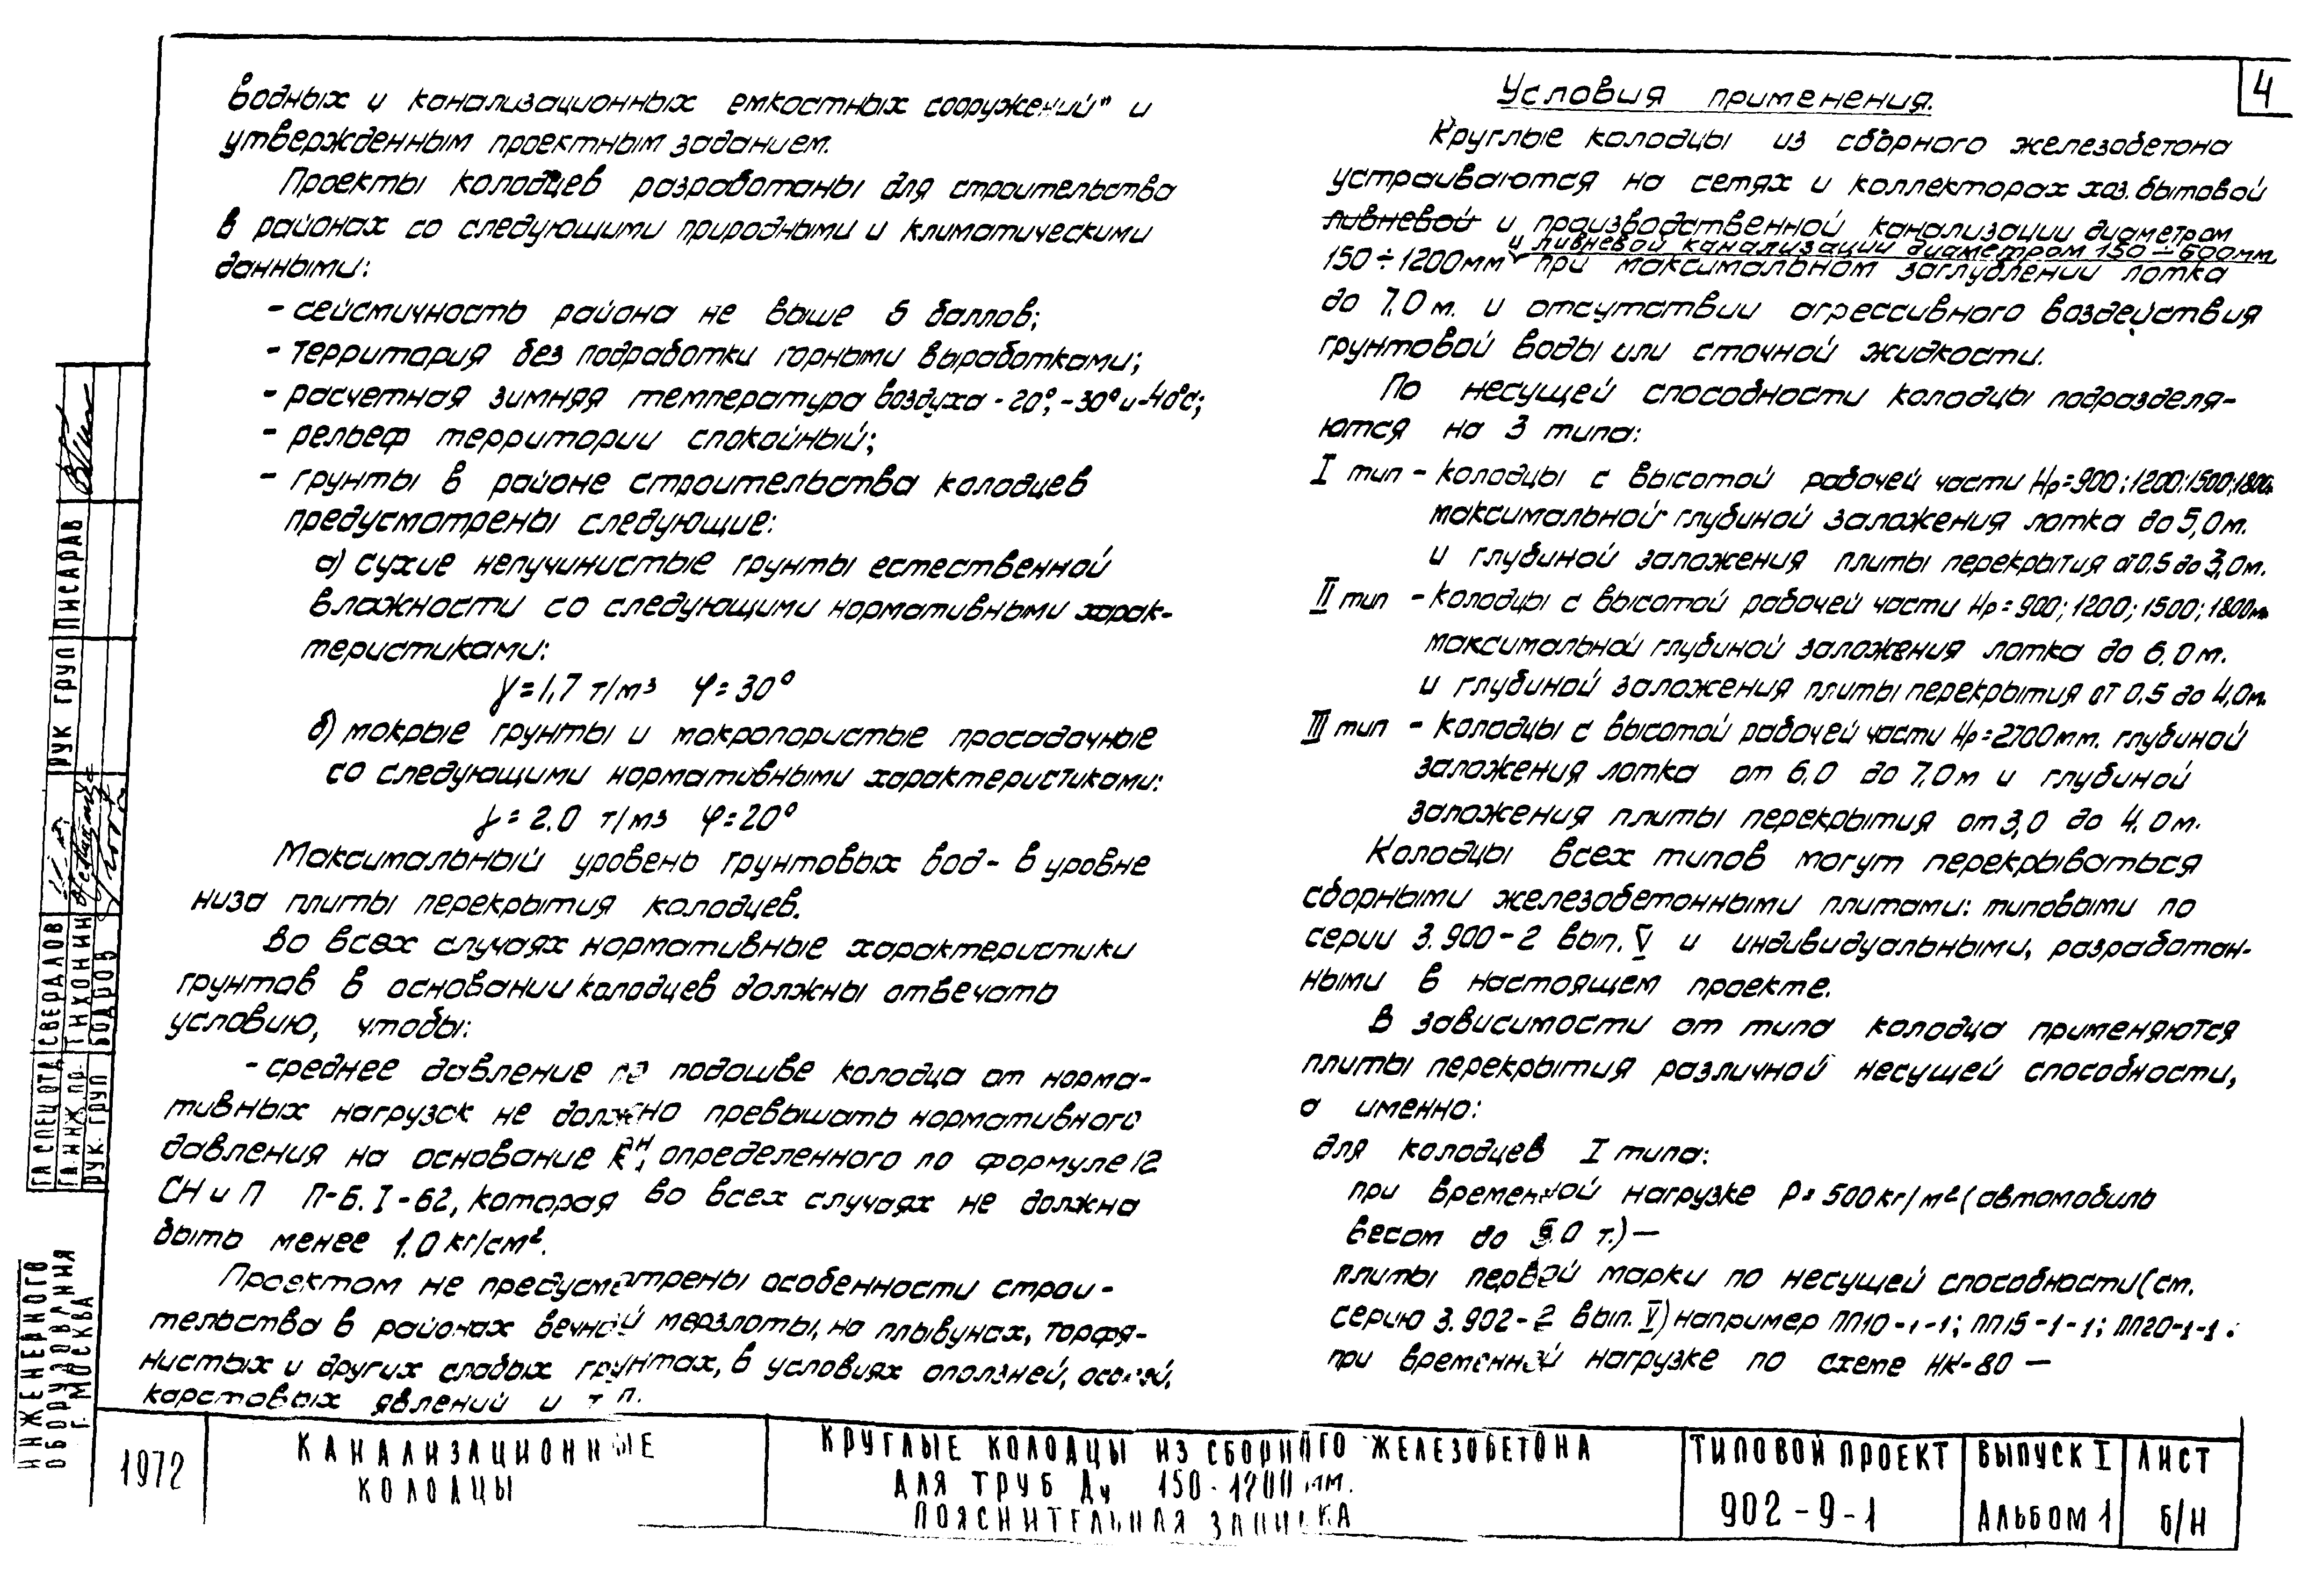 водных и канализационных емкостных сооружений" и
утвержденным проектным заданием.
Проекты колодцев разработаны для строительства
в районах со следующими природными и климатическими
данными:
- сейсмичность района не выше 6 баллов;
- территория без подработки горными выработками;
- расчетная зимняя температура воздуха -20°, -30° и -40°с;
- рельеф территории спокойный;
- грунты в районе строительства колодцев
предусмотрены следующие:
а) сухие непучинистые грунты естественной
влажности со следующими нормативными харак-
теристиками:
γ=1,7 т/м3 φ=30°
б) мокрые грунты и макропористые просадочные
со следующими нормативными характеристиками:
γ=2.0 т/м3 φ=20°
Максимальный уровень грунтовых вод- в уровне
низа плиты перекрытия колодцев.
Во всех случаях нормативные характеристики
грунтов в основании колодцев должны отвечать
условию, чтобы:
- среднее давление по подошве колодца от норма-
тивных нагрузок не должно превышать нормативного
давления на основание Rн, определенного по формуле 12
СНиП П-Б.I-62, которая во всех случаях не должна
быть менее 1.0 кг/см².
Проектом не предусмотрены особенности строи-
тельства в районах вечной мерзлоты, на плывунах, торфя-
нистых и других слабых грунтах, в условиях оползней, осыпей,
карстовых явлений и т.п.
4
Условия применения.
Круглые колодцы из сборного железобетона
устраиваются на сетях и коллекторах хоз.бытовой
ливневой и производственной канализации диаметром
и ливневой канализации диаметром 150÷600мм
150÷1200мм при максимальном заглублении лотка
до 7.0м. и отсутствии агрессивного воздействия
грунтовой воды или сточной жидкости.
По несущей способности колодцы подразделя-
ются на 3 типа:
I тип - колодцы с высотой рабочей части Нр=900;1200;1500;1800м
максимальной глубиной заложения лотка до 5,0м.
и глубиной заложения плиты перекрытия от 0.5 до 3,0м.
II тип - колодцы с высотой рабочей части Нр=900; 1200; 1500; 1800м
максимальной глубиной заложения лотка до 6.0м.
и глубиной заложения плиты перекрытия от 0.5 до 4,0м.
III тип - колодцы с высотой рабочей части Нр=2700мм. глубиной
заложения лотка от 6.0 до 7.0м и глубиной
заложения плиты перекрытия от 3,0 до 4.0м.
Колодцы всех типов могут перекрываться
сборными железобетонными плитами: типовыми по
серии 3.900-2 вып. V и индивидуальными, разработан-
ными в настоящем проекте.
В зависимости от типа колодца применяются
плиты перекрытия различной несущей способности,
а именно:
для колодцев I типа:
при временной нагрузке р=500кг/м² (автомобиль
весом до 5.0 т.)—
плиты первой марки по несущей способности (см.
серию 3.902-2 вып. V) например ПП10-1-1; ПП15-1-1; ПП20-1-1.
при временной нагрузке по схеме НК-80 —
РУК ГРУП ПИСАРАВ
ГЛ СПЕЦ ОТД СВЕРДЛОВ
ГЛ.ИНЖ.ПР. ТИХОНИН
РУК. ГРУП БОДРОВ
ИНЖЕНЕРНОГО
ОБОРУДОВАНИЯ
Г. МОСКВА
1972
КАНАЛИЗАЦИОННЫЕ
КОЛОДЦЫ
КРУГЛЫЕ КОЛОДЦЫ ИЗ СБОРНОГО ЖЕЛЕЗОБЕТОНА
ДЛЯ ТРУБ Ду 150-1200 мм.
ПОЯСНИТЕЛЬНАЯ ЗАПИСКА
ТИПОВОЙ ПРОЕКТ
902-9-1
ВЫПУСК I
АЛЬБОМ 1
ЛИСТ
Б/Н